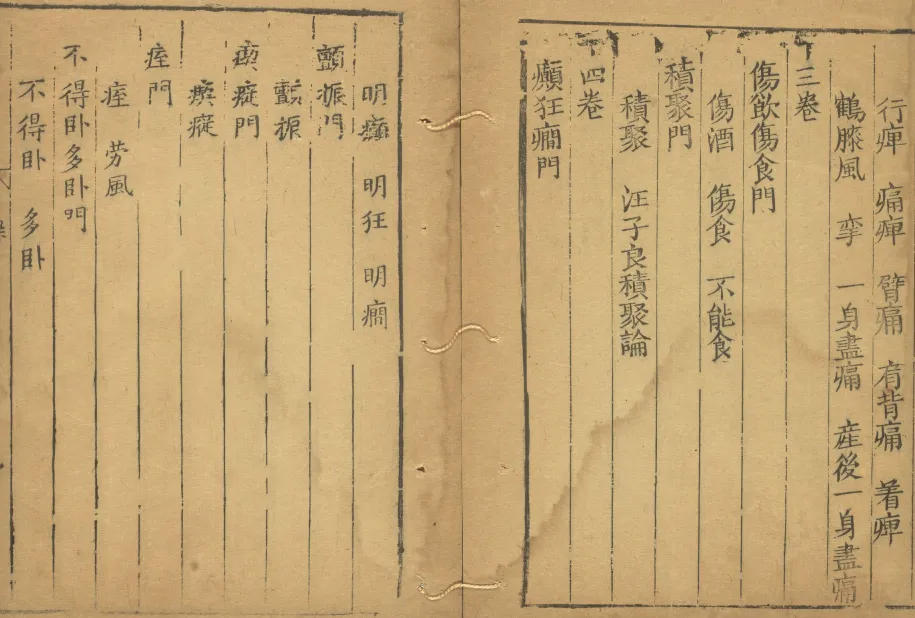 行痺 痛痺 臂痛 肩背痛 着痺
鶴膝風 攣 一身盡痛 産後一身盡痛
三卷
傷飲傷食門
傷酒 傷食 不能食
積聚門
積聚 汪子良積聚論
四卷
癲狂癇門
明癲 明狂 明癇
顫振門
顫振
瘈瘲門
瘈瘲
痓門
痓 勞風
不得臥多臥門
不得臥 多臥